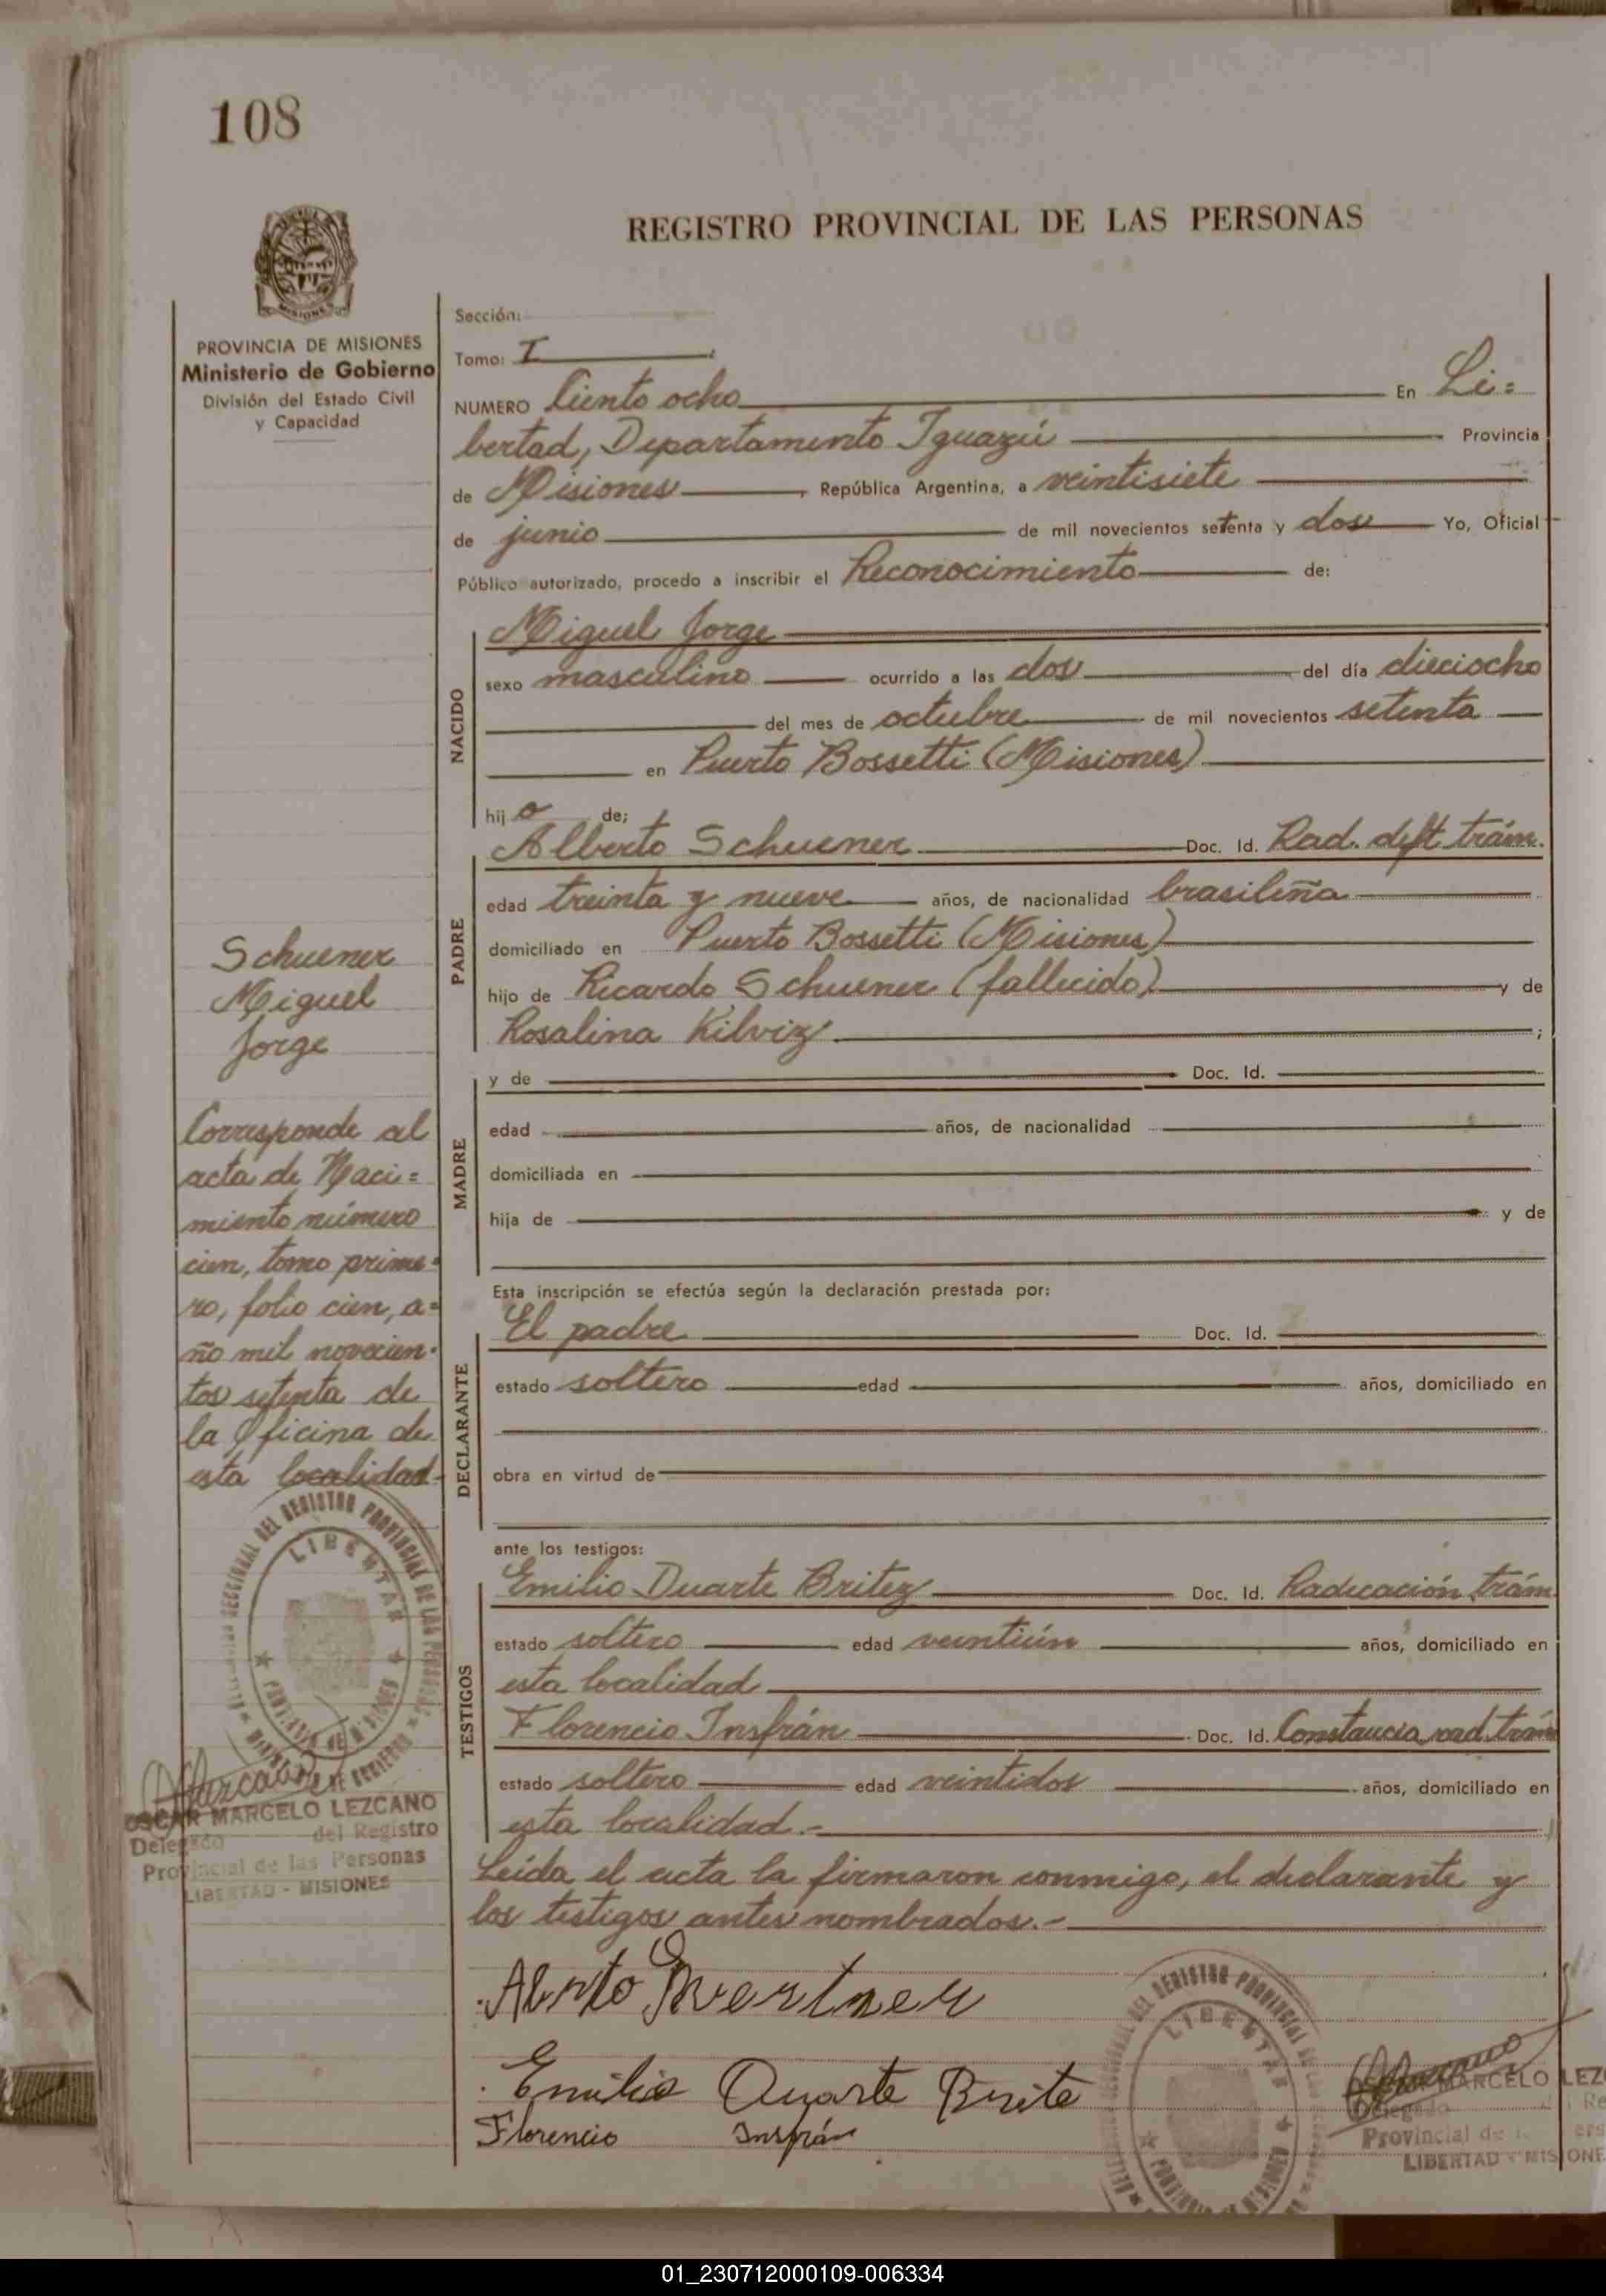 108
REGISTRO PROVINCIAL DE LAS PERSONAS
MISIONES
PROVINCIA DE MISIONES
Ministerio de Gobierno
División del Estado Civil
y Capacidad
Sección:
Tomo: I
NUMERO Ciento ocho En Li=
bertad, Departamento Iguazú Provincia
de Misiones, República Argentina, a veintisiete
de junio de mil novecientos setenta y dos Yo, Oficial
Público autorizado, procedo a inscribir el Reconocimiento de:
NACIDO
Miguel Jorge
sexo masculino ocurrido a las dos del día dieciocho
del mes de octubre de mil novecientos setenta
en Puerto Bossetti (Misiones)
hijo de;
PADRE
Alberto Schuener Doc. Id. Rad. def. trám.
edad treinta y nueve años, de nacionalidad brasileña
domiciliado en Puerto Bossetti (Misiones)
hijo de Ricardo Schuener (fallecido) y de
Rosalina Kilviz ;
MADRE
y de Doc. Id.
edad años, de nacionalidad
domiciliada en
hija de y de
Esta inscripción se efectúa según la declaración prestada por:
DECLARANTE
El padre Doc. Id.
estado soltero edad años, domiciliado en
obra en virtud de
ante los testigos:
TESTIGOS
Emilio Duarte Britez Doc. Id. Radicación trám
estado soltero edad veintiún años, domiciliado en
esta localidad
Florencio Insfrán Doc. Id. Constancia rad. trám
estado soltero edad veintidos años, domiciliado en
esta localidad.-
Leída el acta la firmaron conmigo, el declarante y
los testigos antes nombrados.-
Emilio Duarte Brite
Florencio Insfrán
Schuener
Miguel
Jorge
Corresponde al
acta de Naci=
miento número
cien, tomo prime=
ro, folio cien, a=
ño mil novecien=
tos setenta de
la Oficina de
esta localidad
SECCIONAL DEL REGISTRO PROVINCIAL DE LAS PERSONAS
LIBERTAD
PROVINCIA DE MISIONES
MINISTERIO DE GOBIERNO
OSCAR MARCELO LEZCANO
Delegado del Registro
Provincial de las Personas
LIBERTAD - MISIONES
DEL REGISTRO PROVINCIAL DE
LIBERTAD
PROVINCIA DE MISIONES
MARCELO LEZ
Delegado Re
Provincial de
LIBERTAD - MISIONE
01_230712000109-006334